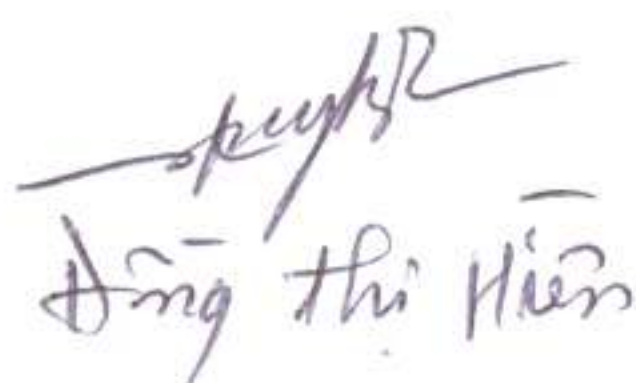 Đồng Thị Hiền